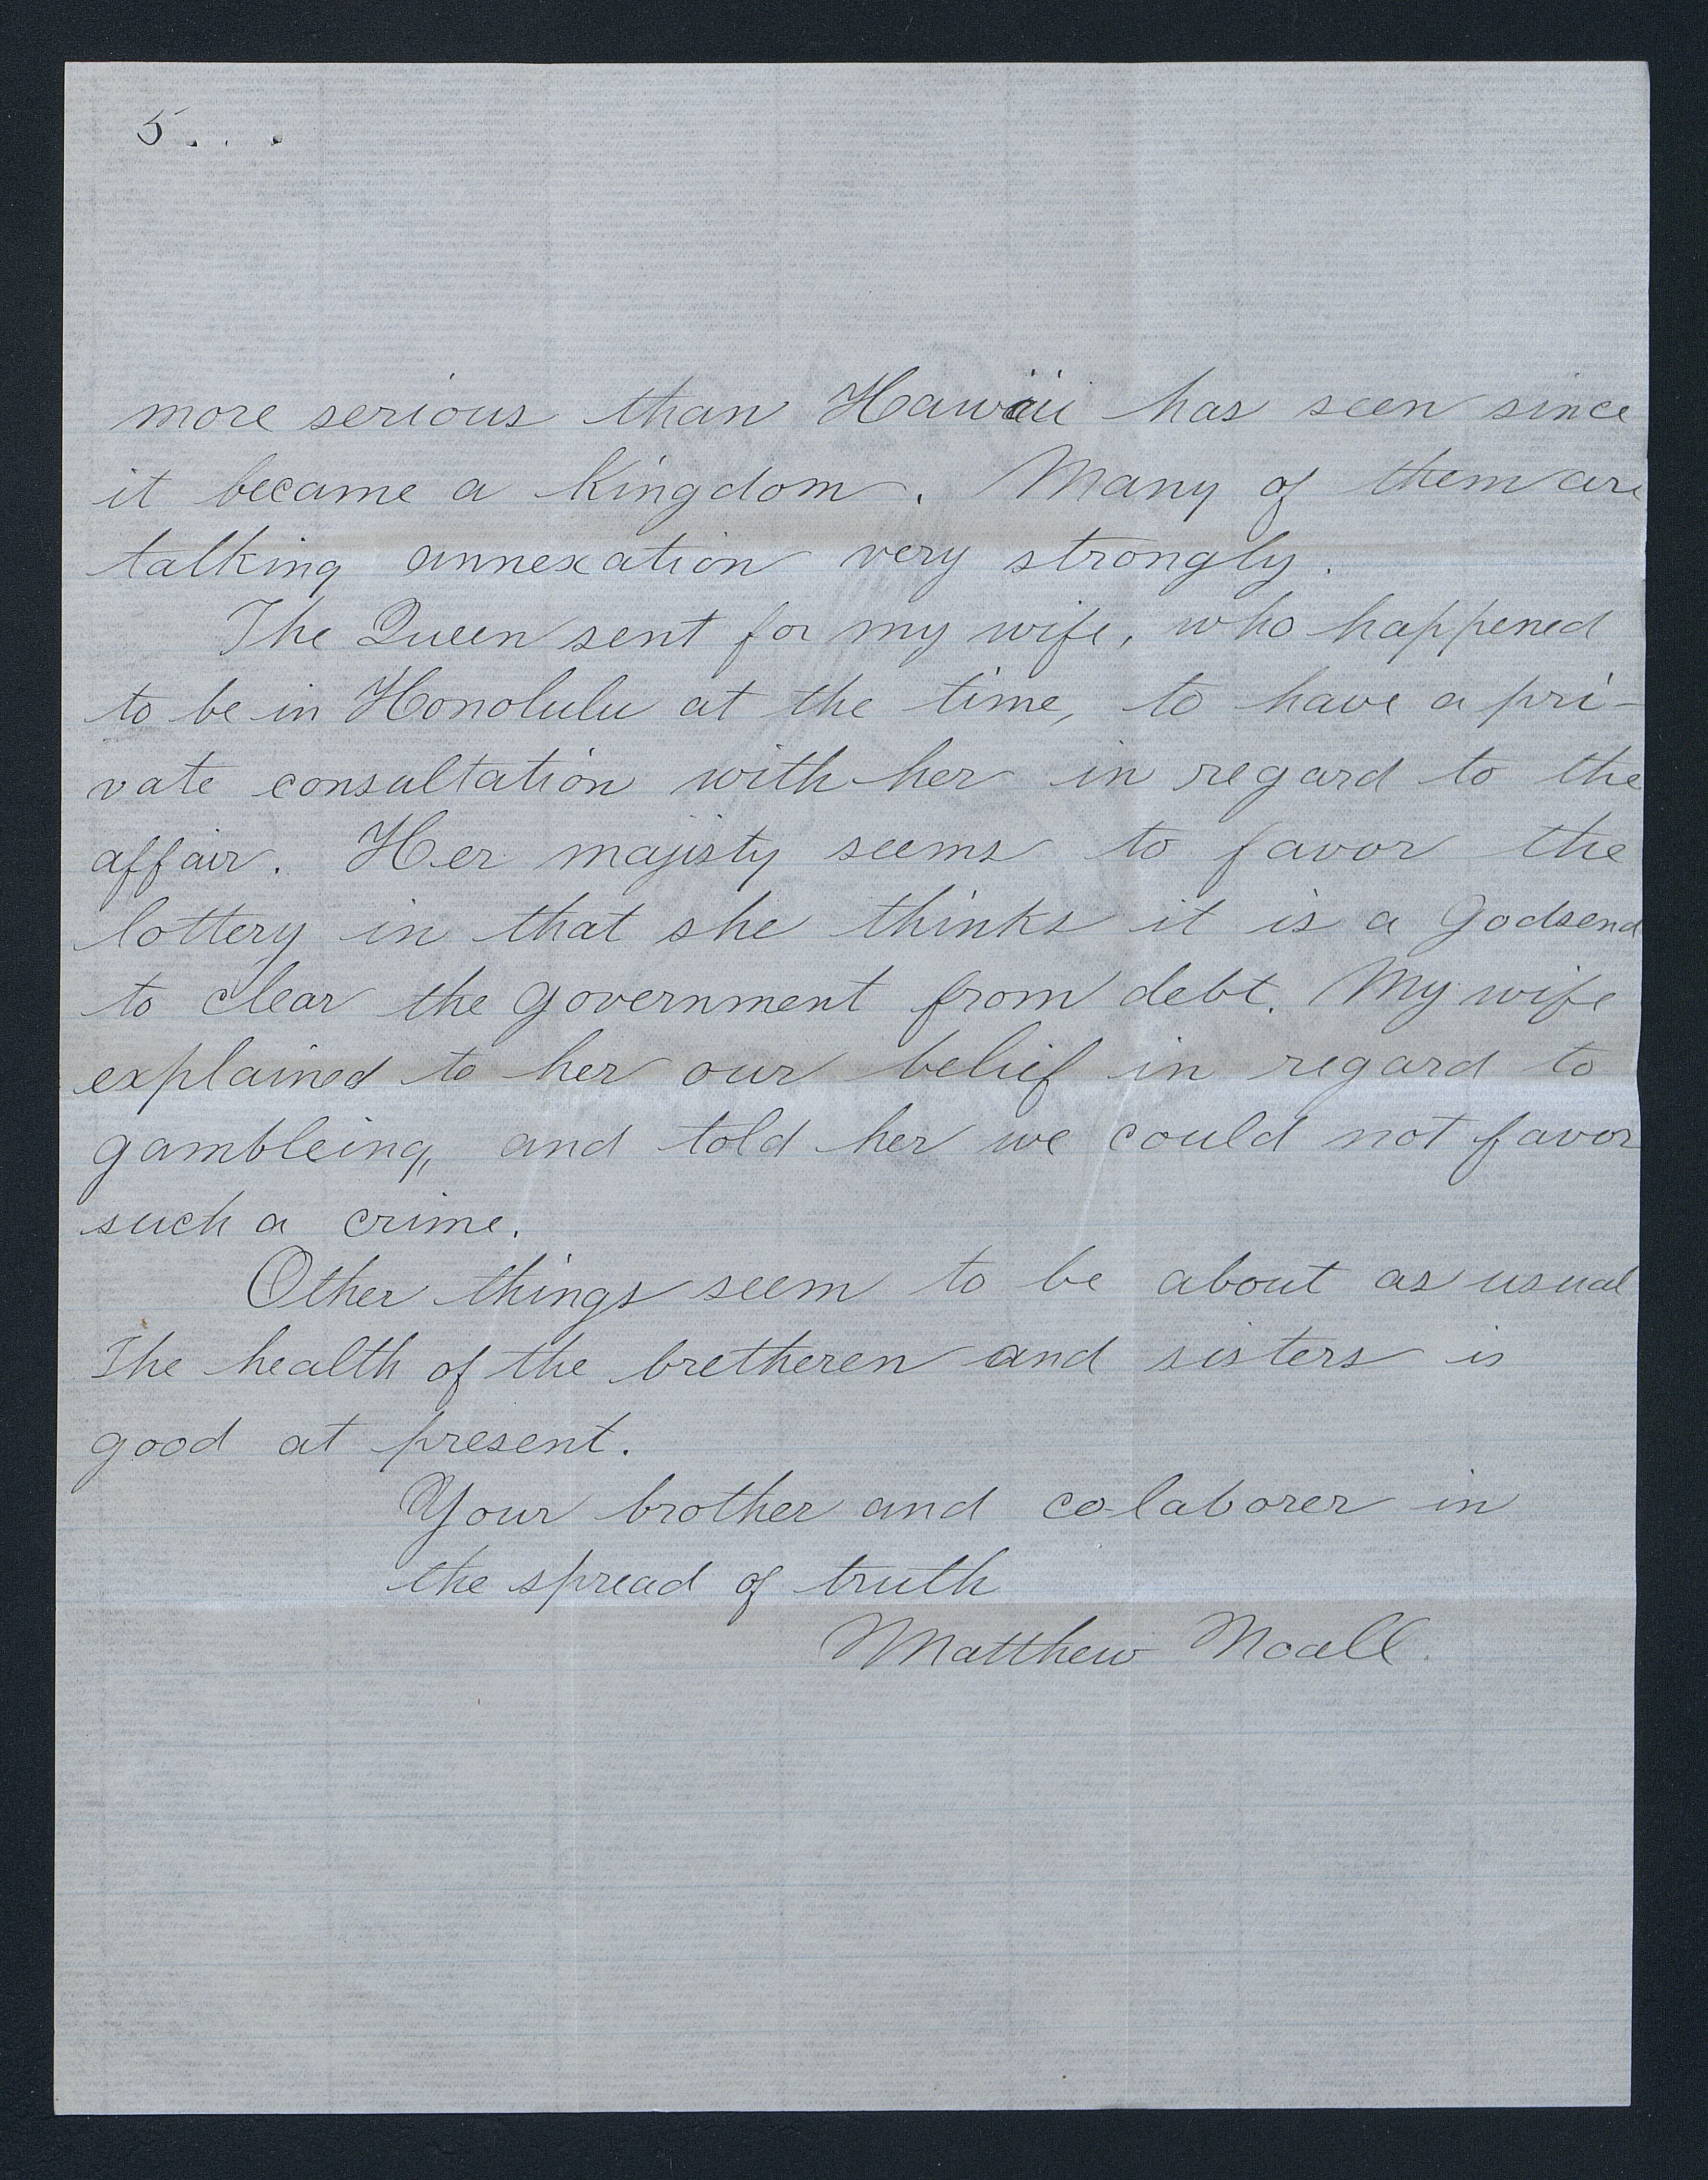 5. . . .
more serious than Hawaii has seen since
it became a Kingdom. Many of them are
talking annexation very strongly.
The Queen sent for my wife, who happened
to be in Honolulu at the time, to have a pri-
vate consultation with her in regard to the
affair. Her majisty seems to favor the
lottery in that she thinks it is a Godsend
to clear the government from debt. My wife
explained to her our belief in regard to
gambleing, and told her we could not favor
such a crime.
Other things seem to be about as usual
The health of the bretheren and sisters is
good at present.
Your brother and co-laborer in
the spread of truth
Matthew Noall.